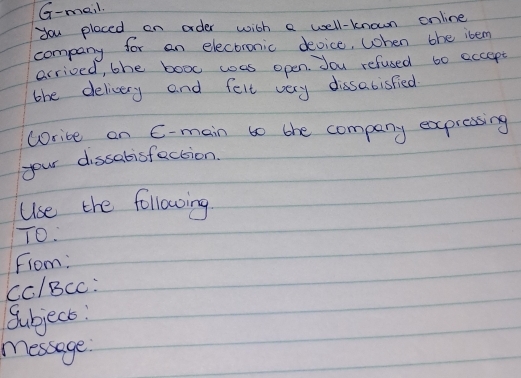 G-mail.
You placed an order with a well-known online
company for an electronic device. When the item
arrived, the boox was open. You refused to accept
the delivery and felt very dissatisfied.
Write an E-main to the company expressing
your dissatisfaction.
Use the following.
TO:
From:
CC/BCC:
Subject:
Message: